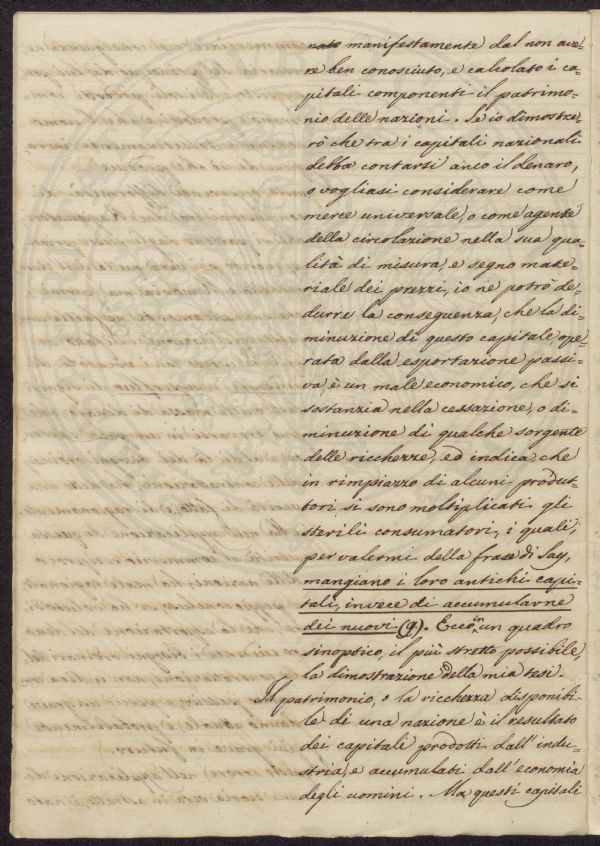 nato manifestamente dal non ave-
re ben conosciuto, e calcolato i ca-
pitali componenti il patrimo-
nio delle nazioni. Se io dimostre-
rò che tra i capitali nazionali
debba contarsi anco il denaro,
o vogliasi considerare come
merce universale, o come agente
della circolazione nella sua qua-
lità di misura, e segno mate-
riale dei prezzi, io ne potrò de-
durre la conseguenza, che la di-
minuzione di questo capitale ope-
rata dalla esportazione passi-
va, è un male economico, che si
sostanzia nella cessazione, o di-
minuzione di qualche sorgente
delle ricchezze, ed indica, che
in rimpiazzo di alcuni produt-
tori, si sono moltiplicati gli
sterili consumatori, i quali,
per valermi della frase di Say,
mangiano i loro antichi capi-
tali, invece di accumularne
dei nuovi (9). Ecco in un quadro
sinoptico, il più stretto possibile,
la dimostrazione della mia tesi.
Il patrimonio, o la ricchezza disponibi-
le di una nazione è il resultato
dei capitali prodotti dall'indu-
stria, e accumulati dall'economia
degli uomini. Ma questi capitali